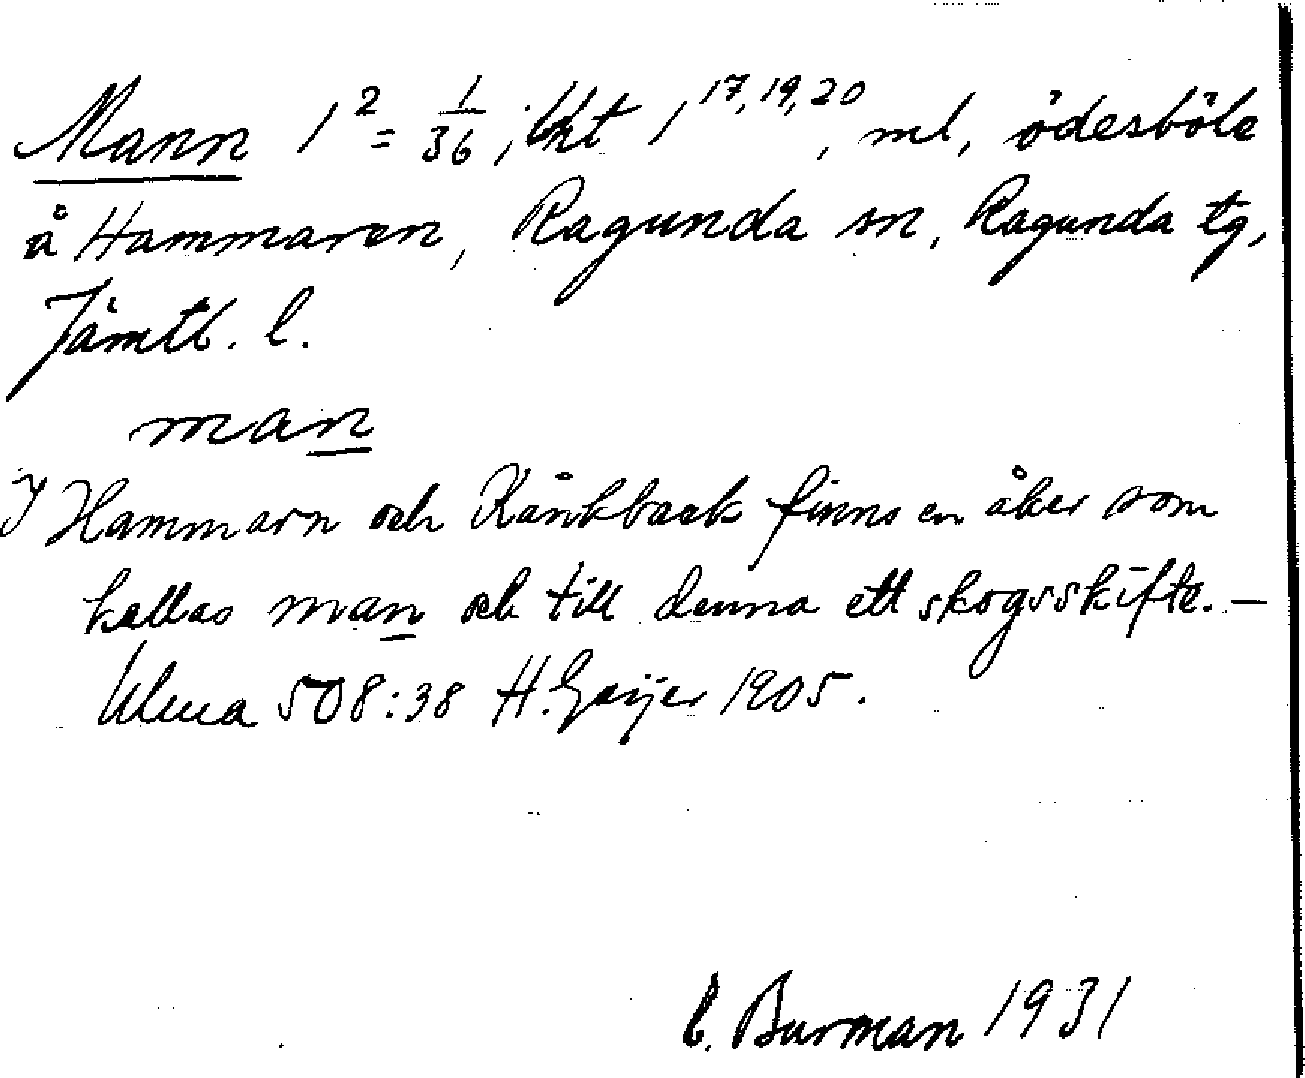 Mann 1² = 1/36, Utkt 1¹⁷,¹⁹,²⁰, ml, ödesböle
å Hammaren, Ragunda sn, Ragunda tg,
Jämtl. l.
man
I Hammarn och Kånkback finns en åker som
kallas man och till denna ett skogsskifte. —
Ulma 508:38 H. Geijer 1905.
C. Burman 1931